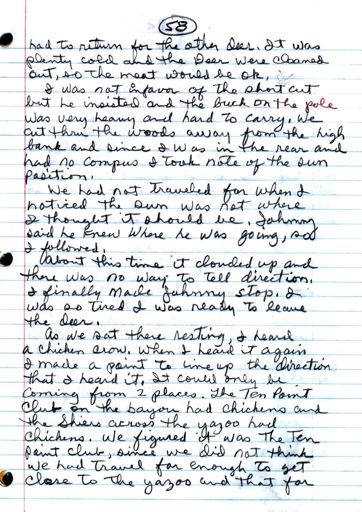 58
had to return for the other deer. It was
plenty cold and the Deer were cleaned
out, so the meat would be ok.
I was not infavor of the short cut
but he insisted and the buck on the pole
was very heavy and hard to carry. We
cut thru the woods away from the high
bank and since I was in the rear and
had no compus I took note of the sun
position.
We had not traveled far when I
noticed the sun was not where
I thought it should be. Johnny
said he knew where he was going, so
I followed.
About this time it clouded up and
there was no way to tell direction.
I finally made Johnny stop. I
was so tired I was ready to leave
the Deer.
As we sat there resting, I heard
a chicken crow. When I heard it again
I made a point to line up the direction
that I heard it. It could only be
coming from 2 places. The Ten Point
Club on the bayou had chickens and
the Shiers across the yazoo had
chickens. We figured it was The Ten
Point Club, since we did not think
we had travel far enough to get
close to the yazoo and that far